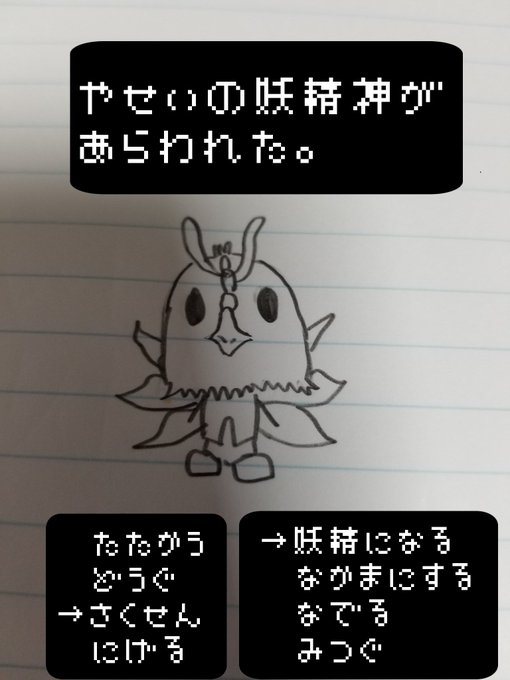 やせいの妖精神が
あらわれた。
たたかう
どうぐ
→さくせん
にげる
→妖精になる
なかまにする
なでる
みつぐ